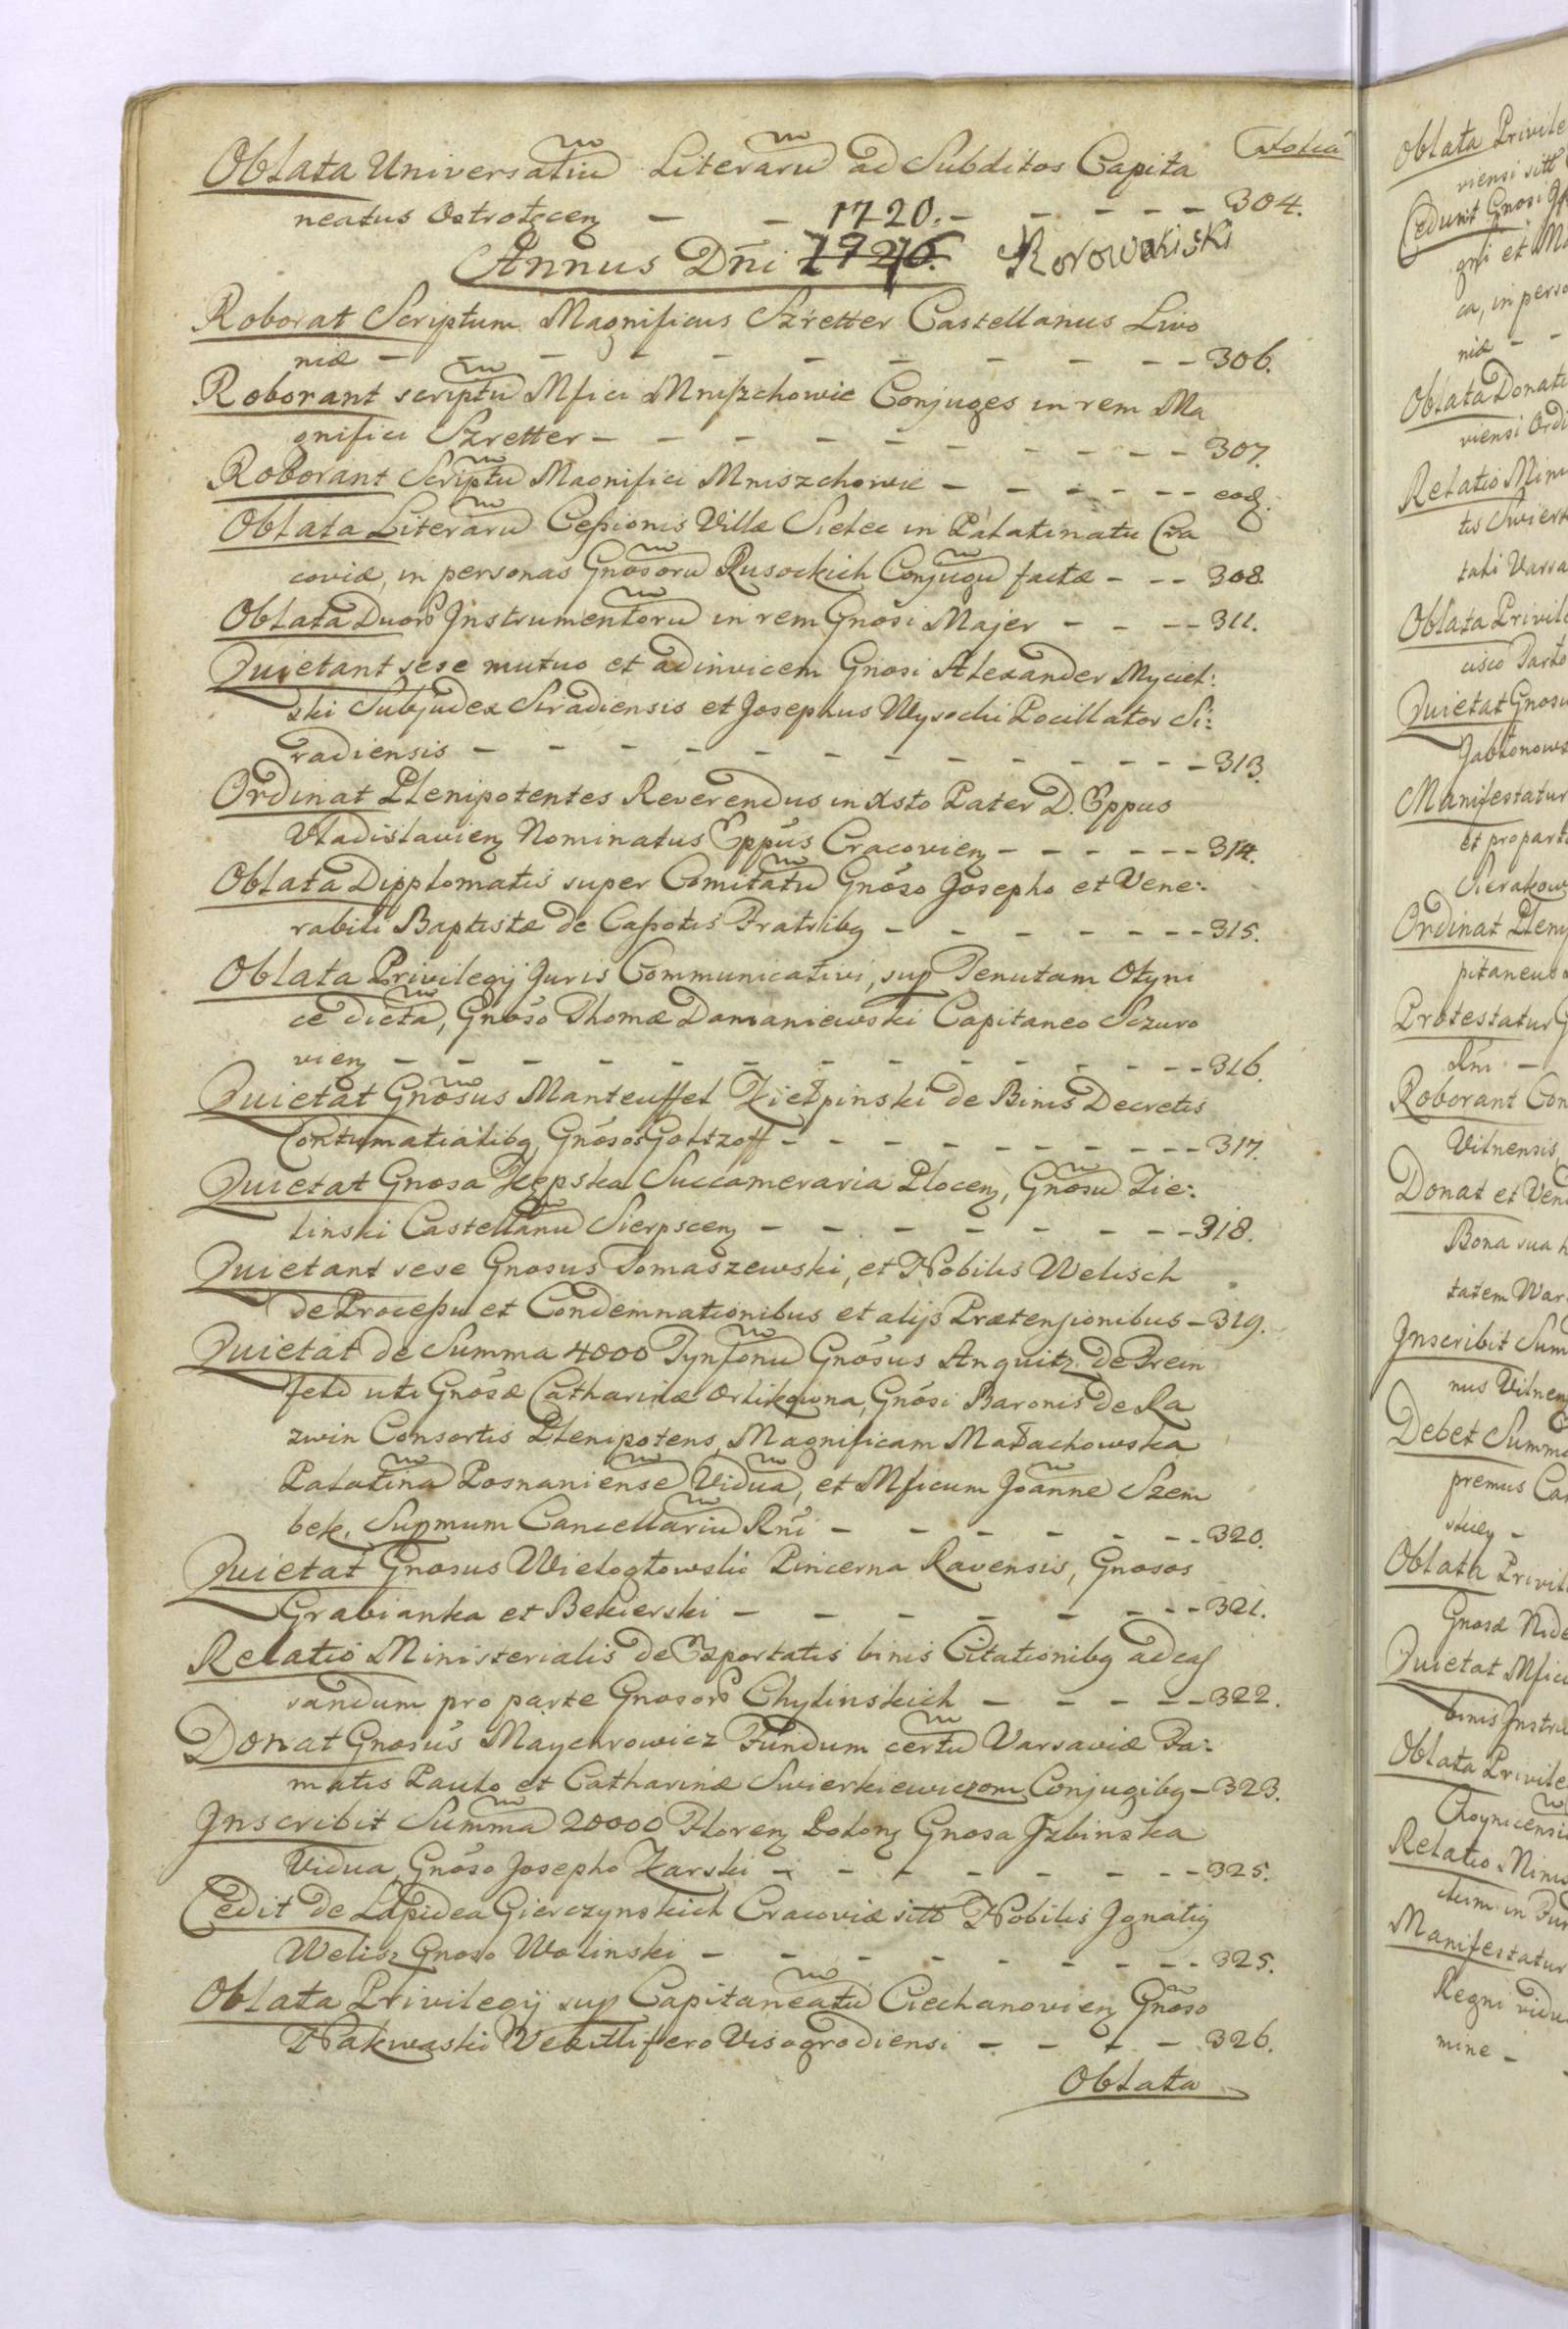 Folia
Oblata Universaliu Literaru ad Subditos Capita
neatus Ostrołęcen - - - - - - 304.
1720.
Annus Dñi 1726. Korowakiski
Roborat Scriptum Magnificus Szretter Castellanus Livo
niæ - - - - - - - - - - 306.
Roborant scriptu Mfici Mniszchowie Conjuges in rem Ma
gnifici Szretter - - - - - - - - - 307.
Roborant Scriptu Magnifici Mniszchowie - - - - - - eod.
Oblata Literaru Cessionis Villæ Sielec in Palatinatu Cra
coviæ, in personas Gnosoru Rusockich Conjugu factæ - - - 308.
Oblata Duor Instrumentoru in rem Gnosi Majer - - - - 311.
Quietant sese mutuo et adinvicem Gnosi Alexander Myciel:
ski Subjudex Siradiensis et Josephus Wysocki Pocillator Si:
radiensis - - - - - - - - - - - - 313.
Ordinat Plenipotentes Reverendus in Xsto Pater D. Eppus
Vladislavien Nominatus Eppus Cracovien - - - - - - 314.
Oblata Dipplomatis super Comitatu Gnoso Josepho et Vene:
rabili Baptistæ de Cassotis Fratribq - - - - - - - 315.
Oblata Privilegij Juris Communicativi, sup Tenutam Otyni
ce dicta, Gnoso Thomæ Damaniewski Capitaneo Sczuro
vien - - - - - - - - - - - - - 316.
Quietat Gnosus Manteuffel Kiełpinski de Binis Decretis
Contumatialibq Gnosos Goltzoff - - - - - - - - - 317.
Quietat Gnosa Kępska Succameraria Plocen, Gnosu Zie:
linski Castellanu Sierpscen - - - - - - - - - 318.
Quietant sese Gnosus Tomaszewski, et Nobilis Welisch
de Processu et Condemnationibus et alijs Prætensionibus - 319.
Quietat de Summa 4000 Tynfonu Gnosus Anguitz de Prein
feld uti Gnosæ Catharinæ Orlikowna, Gnosi Baronis de Ra
zwin Consortis Plenipotens, Magnificam Małachowska
Palatina Posnaniense Vidua, et Mficum Joanne Szem
bek, Supmum Cancellariu Rni - - - - - - - - 320.
Quietat Gnosus Wielogłowski Pincerna Ravensis, Gnosos
Grabianka et Bekierski - - - - - - - - 321.
Relatio Ministerialis de Exportatis binis Citationibq ad cas
sandum pro parte Gnosor Chylinskich - - - - - 322.
Donat Gnosus Maycherowicz Fundum certu Varsaviæ Fa:
matis Paulo et Catharinæ Swierkiewiczom Conjugibq - 323.
Inscribit Summa 20000 Floren Polon Gnosa Izbinska
Vidua, Gnoso Josepho Karski - - - - - - - - 325.
Cedit de Lapidea Gierczynskich Cracoviæ sitt Nobilis Ignatiq
Welisz Gnoso Wolinski - - - - - - - - - 325.
Oblata Privilegij sup Capitaneatu Ciechanovien Gnoso
Nakwaski Vexillifero Visogrodiensi - - - - 326.
Oblata
Oblata Privile
viensi sitt
Cedunt Gnosi
gni et Ma
ca, in perso
niæ - -
Oblata Donati
viensi Ordi
Relatio Mini
tis Swierk
tati Varsa
Oblata Privile
cisco Parto
Quietat Gnosu
Jabłonows
Manifestatur
et pro parte
Sierakow
Ordinat Pleni
pitaneus
Protestatur G
Rni -
Roborant Con
Vilnensis,
Donat et Ven
Bona sua h
tatem War
Inscribit Sum
nus Vilnen
Debet Summa
premus Ca
Oblata Privil
Gnosæ Nide
Quietat Mfici
binis Instru
Oblata Privile
Choynicensi
Relatio Minis
ctum in Fun
Manifestatur
Regni vidu
mine -